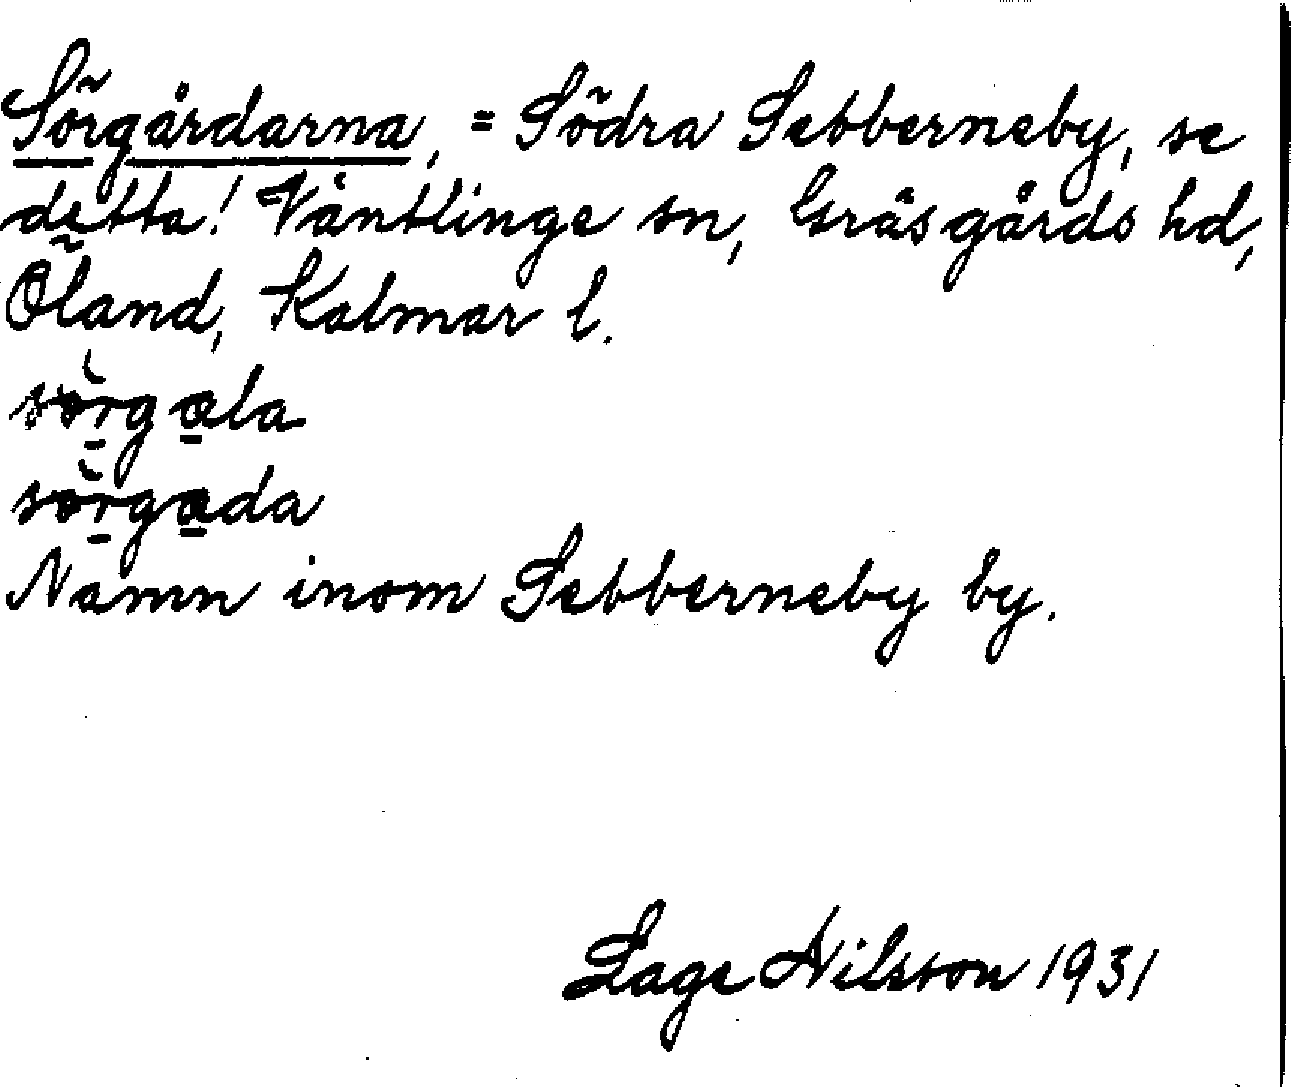 Sörgårdarna, = Södra Sebberneby, se
detta! Våntlinge sn, Gräsgårds hd,
Öland, Kalmar l.
sörgala
sörgada
Namn inom Sebberneby by.
Lage Nilsson 1931